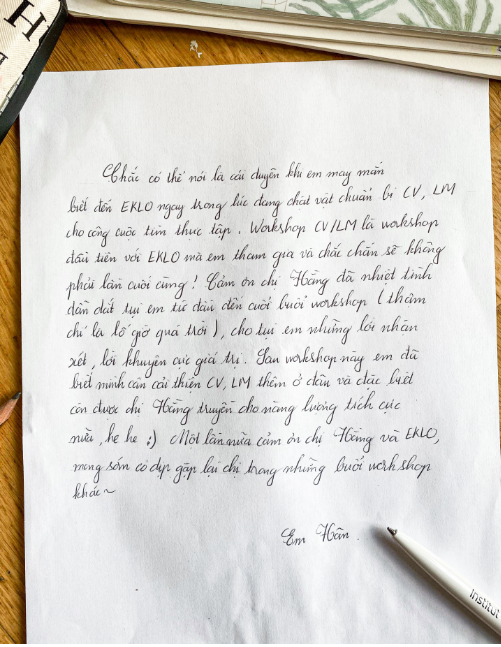 H
Chắc có thể nói là cái duyên khi em may mắn
biết đến EKLO ngay trong lúc đang chật vật chuẩn bị CV, LM
cho công cuộc tìm thực tập. Workshop CV/LM là workshop
đầu tiên với EKLO mà em tham gia và chắc chắn sẽ không
phải lần cuối cùng! Cảm ơn chị Hằng đã nhiệt tình
dẫn dắt tụi em từ đầu đến cuối buổi workshop (thậm
chí là lố giờ quá trời), cho tụi em những lời nhận
xét, lời khuyên cực giá trị. Sau workshop này em đã
biết mình cần cải thiện CV, LM thêm ở đâu và đặc biệt
còn được chị Hằng truyền cho năng lượng tích cực
nữa, he he :) Một lần nữa cảm ơn chị Hằng và EKLO,
mong sớm có dịp gặp lại chị trong những buổi workshop
khác~
Em Hân.
Institut